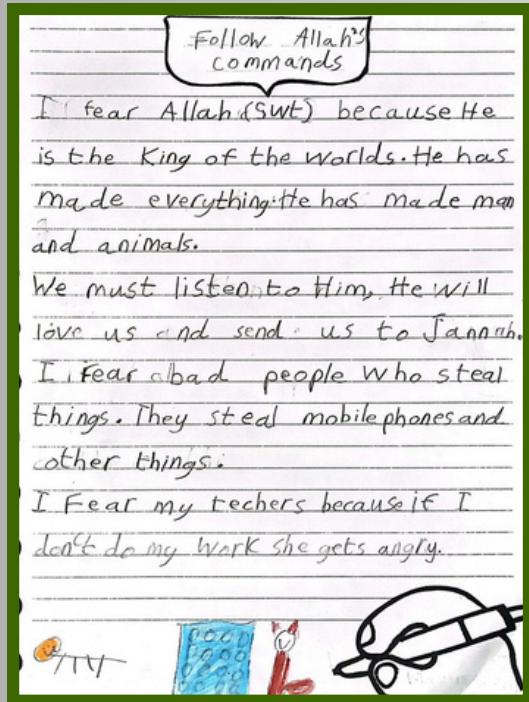 Follow Allah's
commands
I fear Allah (swt) because He
is the King of the worlds. He has
made everything. He has made man
and animals.
We must listen to Him, He will
love us and send us to Jannah.
I fear bad people who steal
things. They steal mobile phones and
other things.
I Fear my techers because if I
don't do my work she gets angry.